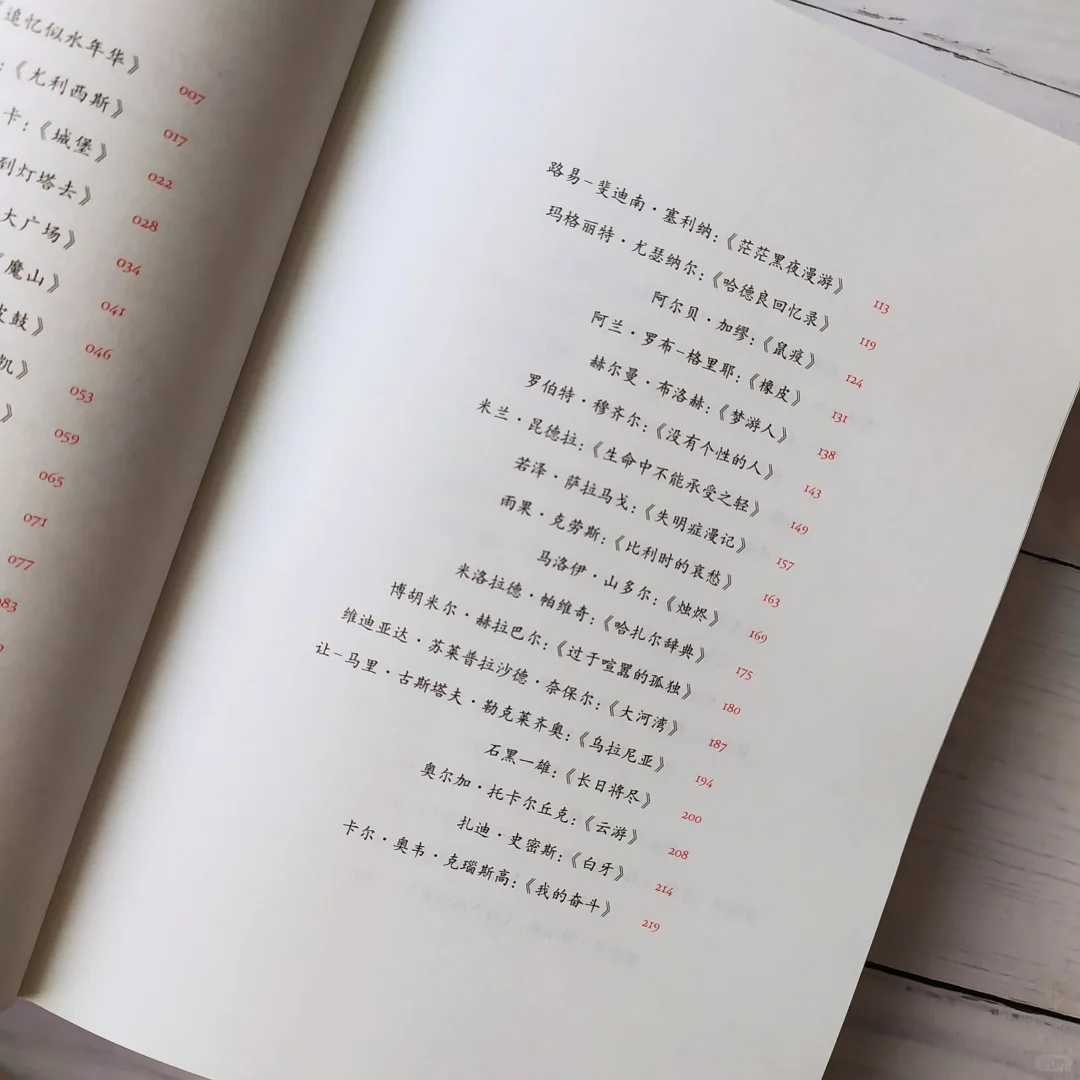 追忆似水年华》 007
：《尤利西斯》 017
卡：《城堡》 022
到灯塔去》 028
大广场》 034
《魔山》 041
皮鼓》 046
凯》 053
》 059
065
071
077
083
路易-斐迪南·塞利纳：《茫茫黑夜漫游》 113
玛格丽特·尤瑟纳尔：《哈德良回忆录》 119
阿尔贝·加缪：《鼠疫》 124
阿兰·罗布-格里耶：《橡皮》 131
赫尔曼·布洛赫：《梦游人》 138
罗伯特·穆齐尔：《没有个性的人》 143
米兰·昆德拉：《生命中不能承受之轻》 149
若泽·萨拉马戈：《失明症漫记》 157
雨果·克劳斯：《比利时的哀愁》 163
马洛伊·山多尔：《烛烬》 169
米洛拉德·帕维奇：《哈扎尔辞典》 175
博胡米尔·赫拉巴尔：《过于喧嚣的孤独》 180
维迪亚达·苏莱普拉沙德·奈保尔：《大河湾》 187
让-马里·古斯塔夫·勒克莱齐奥：《乌拉尼亚》 194
石黑一雄：《长日将尽》 200
奥尔加·托卡尔丘克：《云游》 208
扎迪·史密斯：《白牙》 214
卡尔·奥韦·克瑙斯高：《我的奋斗》 219